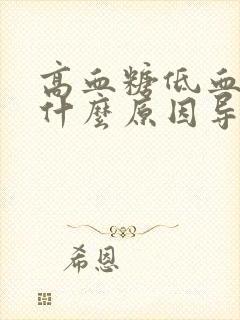 高血糖低血
什麼原因导
希恩